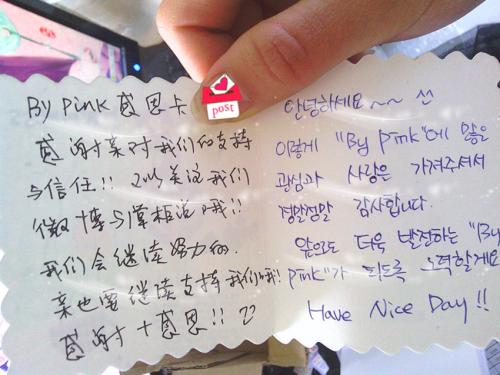 By Pink 感恩卡
感谢亲对我们的支持
与信任!! 可以关注我们
微博与掌柜说哦!!
我们会继续努力的.
亲也要继续支持我们哦!
感谢+感恩!!
post
안녕하세요~~ ^^
이렇게 "By Pink"에 많은
관심과 사랑은 가져주셔서
정말정말 감사합니다.
앞으로 더욱 발전하는 "By
Pink"가 되도록 노력할게요
Have Nice Day !!